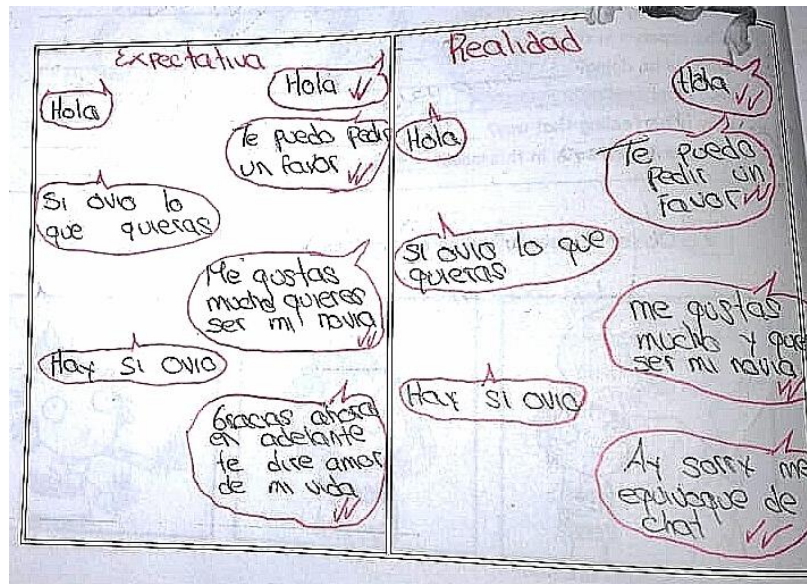 Expectativa
Hola
Hola
Te puedo pedir
un favor
Si ovio lo
que quieras
Me gustas
mucho quieres
ser mi novia
Hay si ovio
Gracas ahora
en adelante
te dire amor
de mi vida
Realidad
Hola
Hola
Te puedo
pedir un
favor
Si ovio lo que
quieras
me gustas
mucho y
ser mi novia
Hay si ovio
Ay sorry me
equivoque de
chat